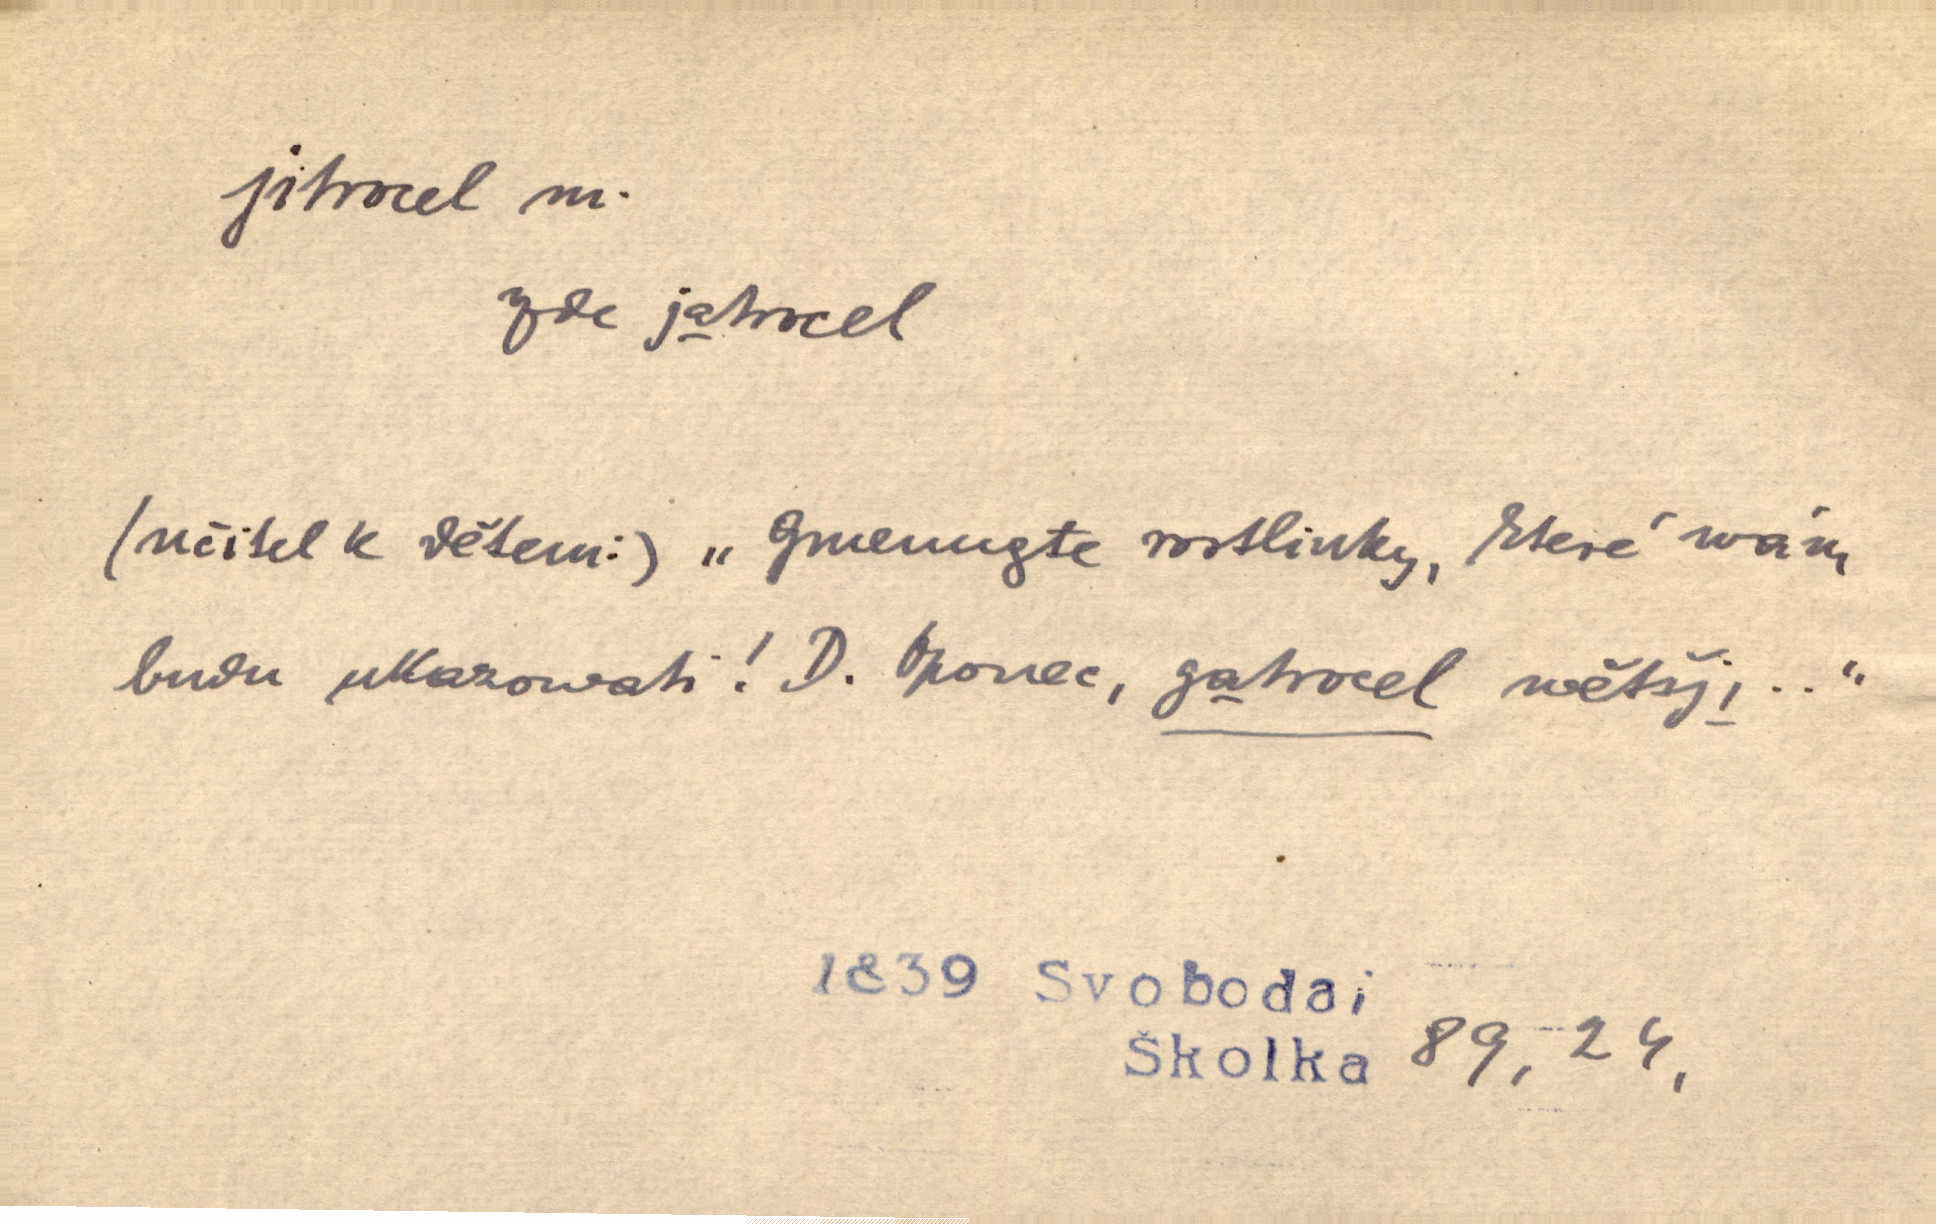 jitrocel m.
zde jatrocel
(učitel k dětem:) „Gmenugte rostlinky, které wám
budu ukazowati! D. Oponec, gatrocel wětšj, .. “
1839 Svoboda i
Školka 89, 24,